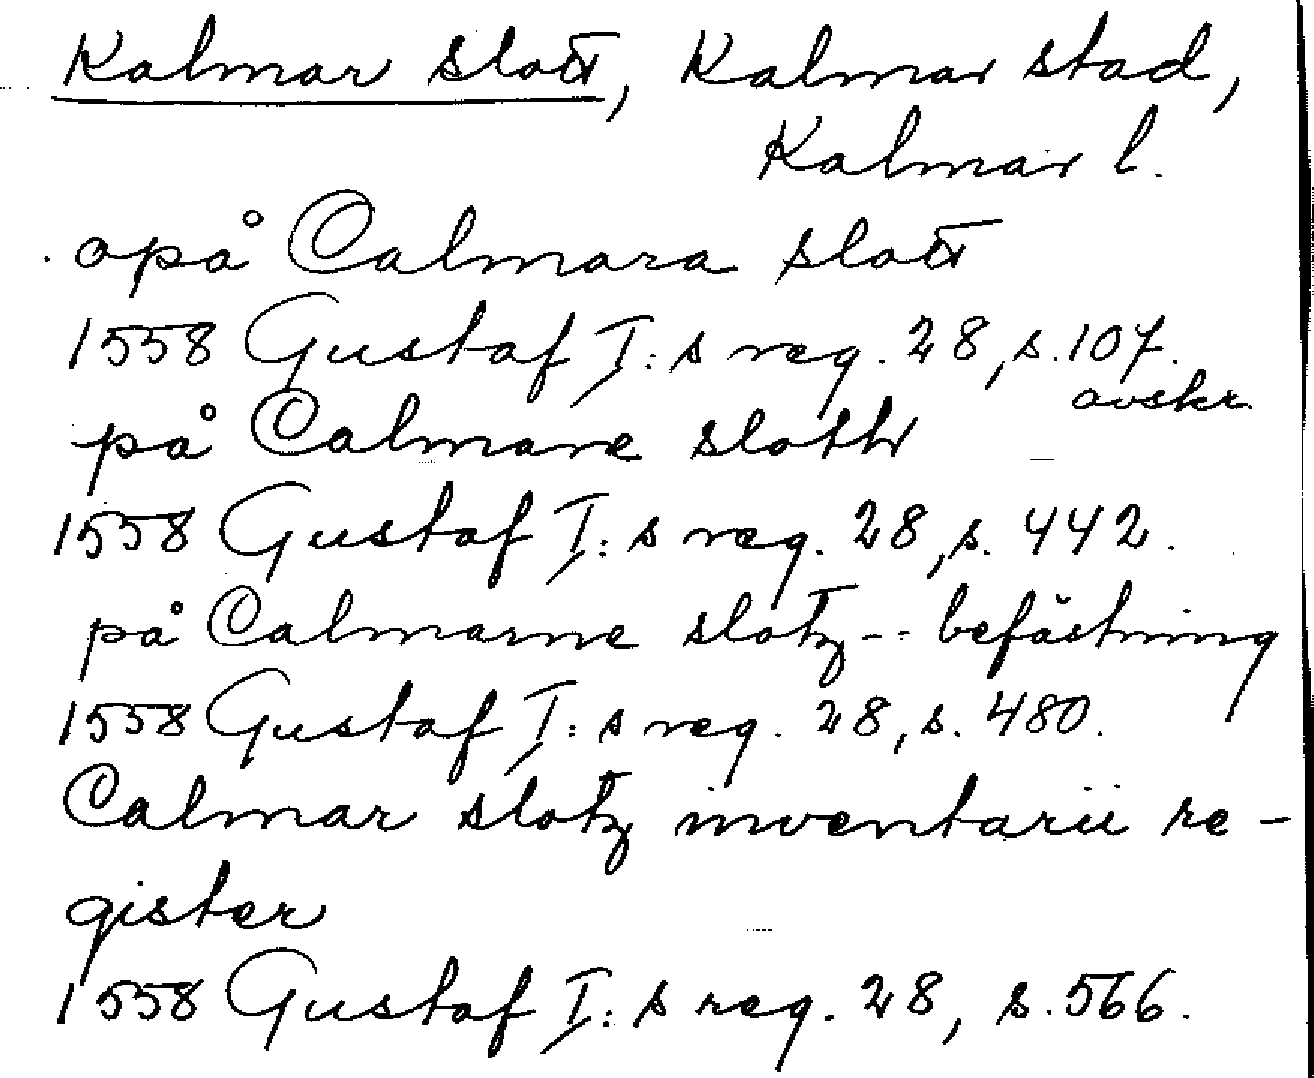 Kalmar slott, Kalmar stad,
Kalmar l.
opå Calmara slott
1558 Gustaf I:s reg. 28, s. 107.
avskr.
på Calmare sloth
1558 Gustaf I:s reg. 28, s. 442.
på Calmarne slotz -- befästning
1558 Gustaf I:s reg. 28, s. 480.
Calmar slotz inventarii re-
gister
1558 Gustaf I:s reg. 28, s. 566.